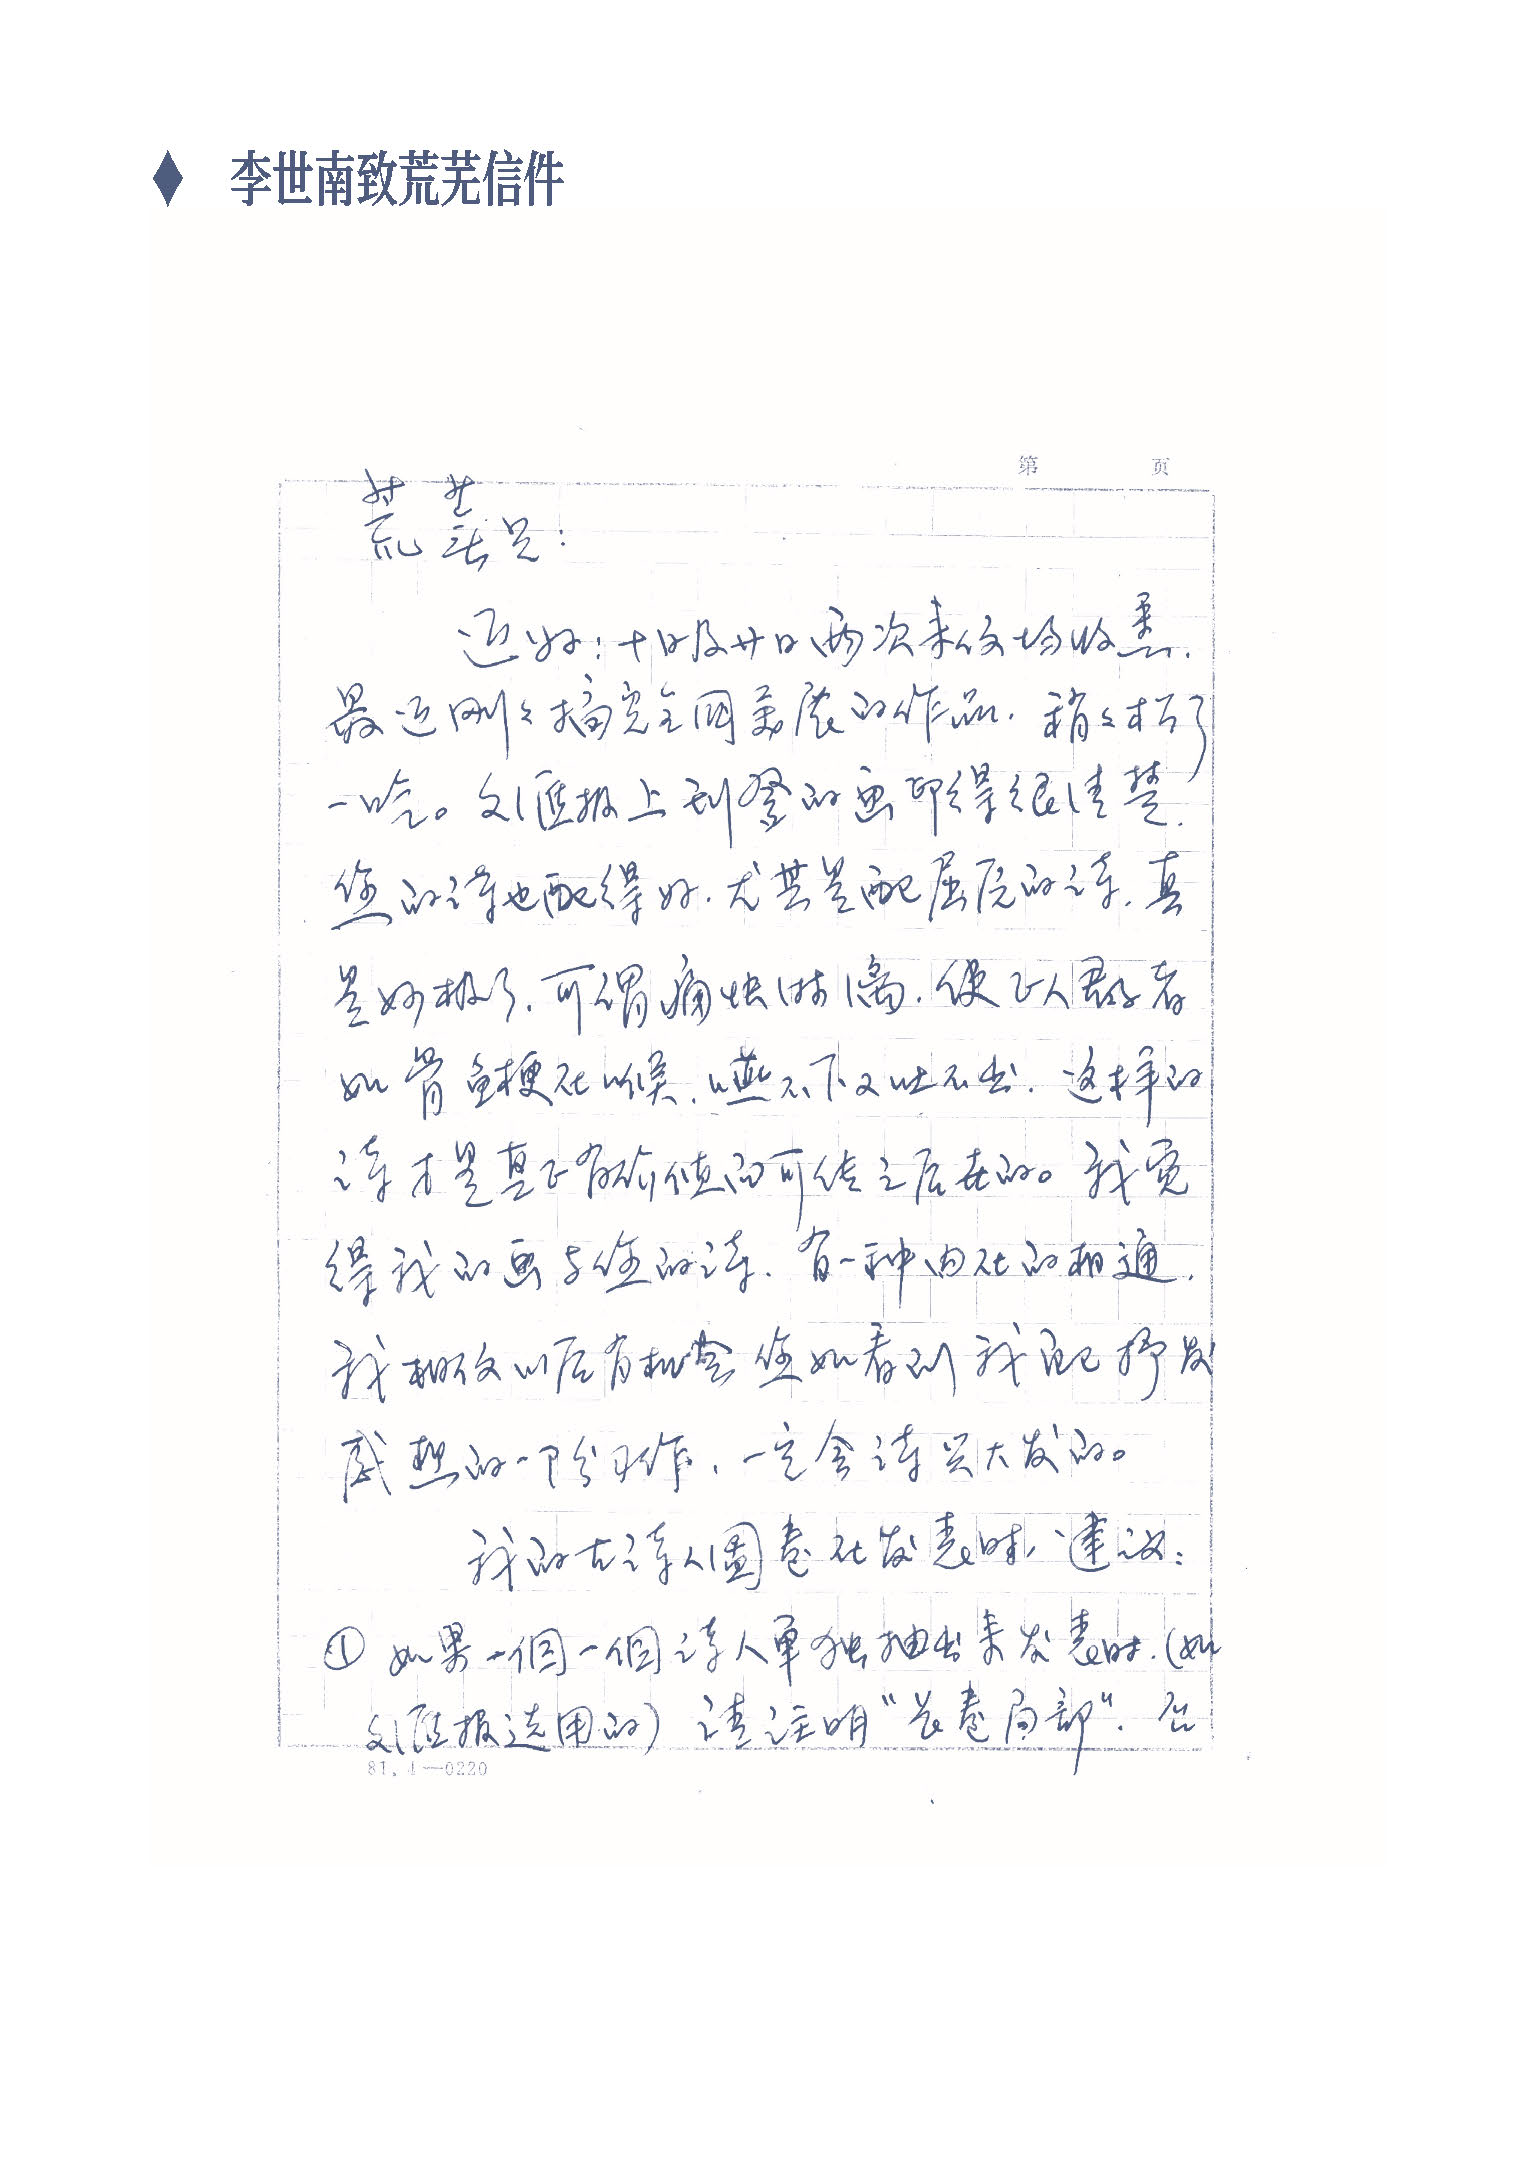 李世南致荒芜信件
第 页
荒芜兄：
近好：十日及廿日两次来信均收悉.
最近刚刚搞完全国美展的作品. 稍稍松了
一口气。文汇报上刊登的画印得很清楚.
您的诗也配得好. 尤其是配屈原的诗. 真
是妙极了. 可谓痛快淋漓. 使正人君子看
如骨鱼梗在喉. 嚥不下又吐不出. 这样的
诗才是真正有价值而可传之后世的。我觉
得我的画与您的诗. 有一种内在的相通.
我相信以后有机会您如看到我自己抒发
感想的一部分习作, 一定会诗兴大发的。
我的古诗人图卷在发表时, 建议:
① 如果一个一个诗人单独抽出来发表时. (如
文汇报选用的) 请注明“长卷局部”.
81.4—0220